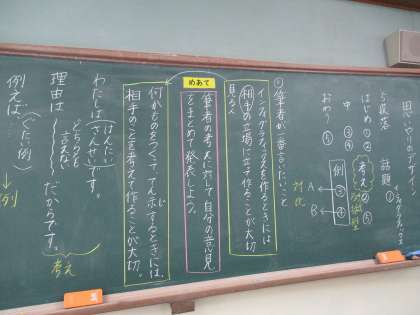 思いやりのデザイン
五段落 話題①
インフォグラフィックス
はじめ①② 考え②⑤
中③④ 例③④
双括型
A
B
対比
おわり⑤
◎筆者が一番言いたいこと
インフォグラフィックスを作るときには
相手の立場に立って作ることが大切
見る人
めあて
筆者の考えに対して自分の意見
をまとめて発表しよう。
何かものをつくって、てん示するときには、
相手のことを考えて作ることが大切。
わたしは(さんせい)です。
はんたい
どちらとも言えない
理由は〜〜だからです。
考え
例えば、
(ぐたい例)
→例